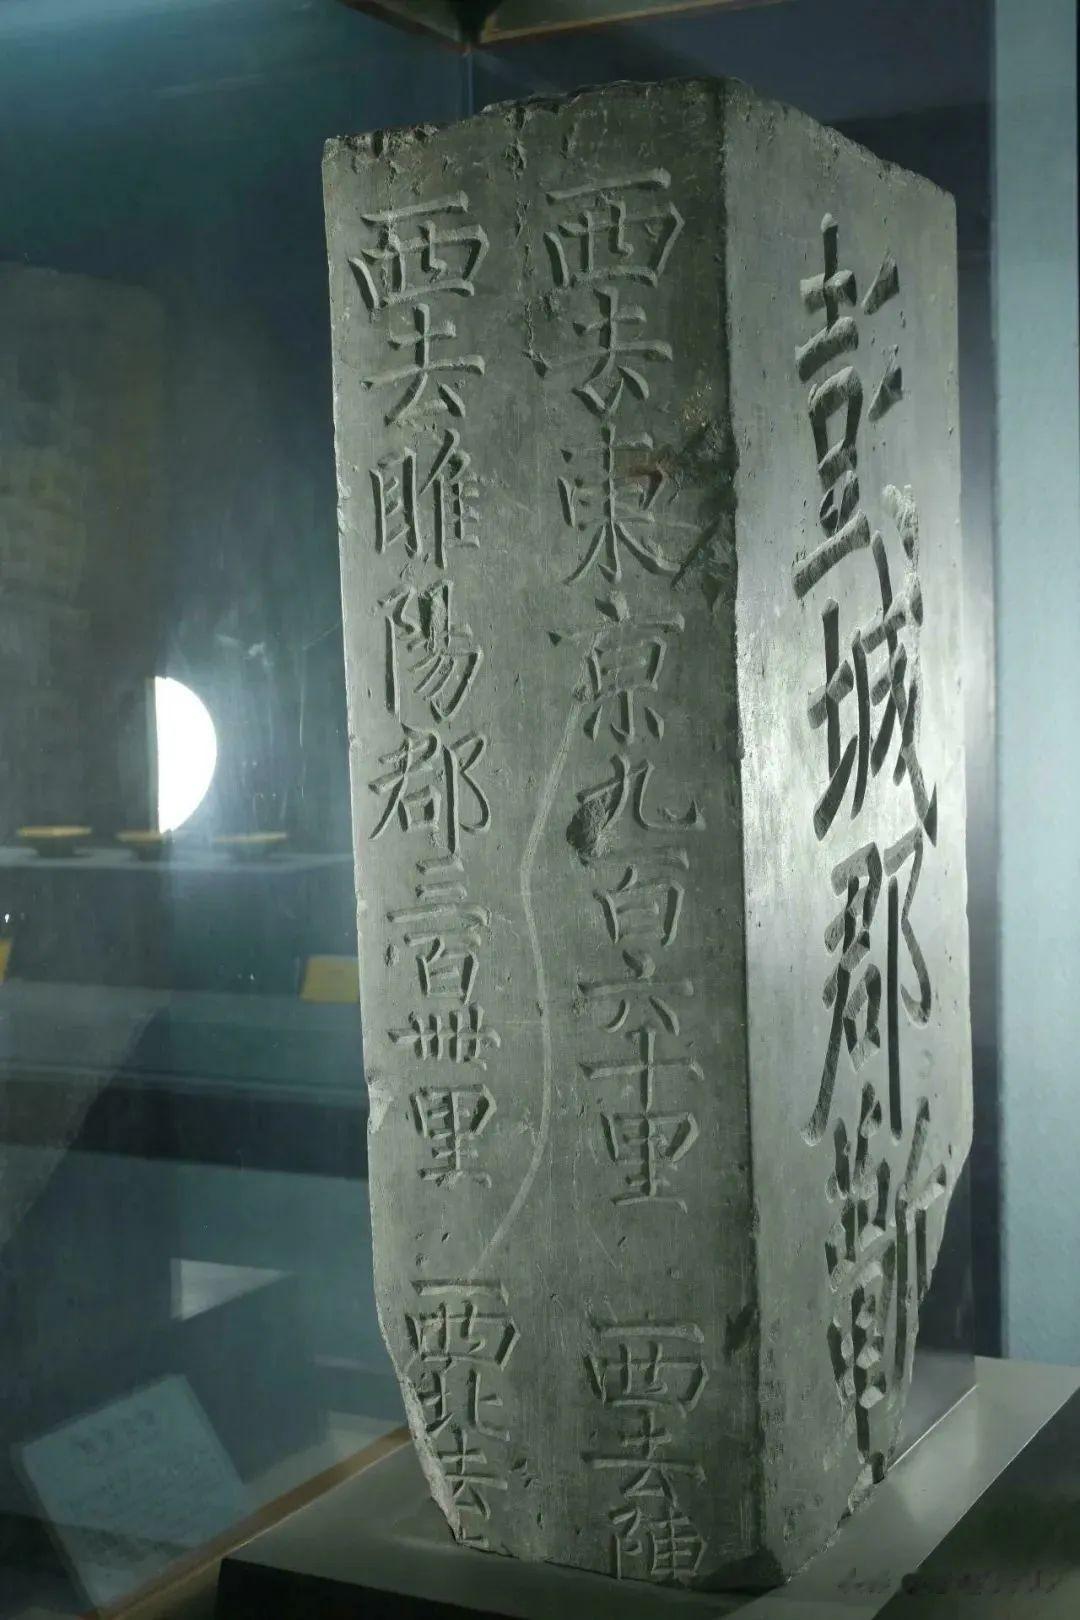 彭城郡蘄
西去東京九百六十里 西去陳
西去睢陽郡三百卌里 西北去